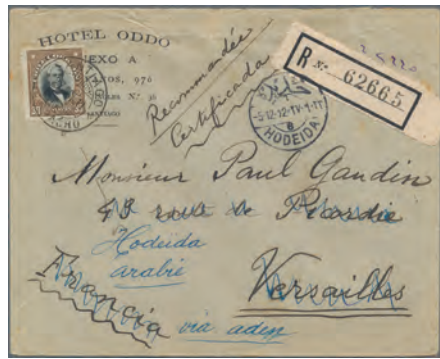 HOTEL ODDO
NEXO A
os, 976
SANTIAGO
Recommandée
Certificada
R No. 62665
5.12.12
HODEIDA
Monsieur Paul Gaudin
43 rue de Picardie
Hodeida
arabie
Versailles
Francia
via aden